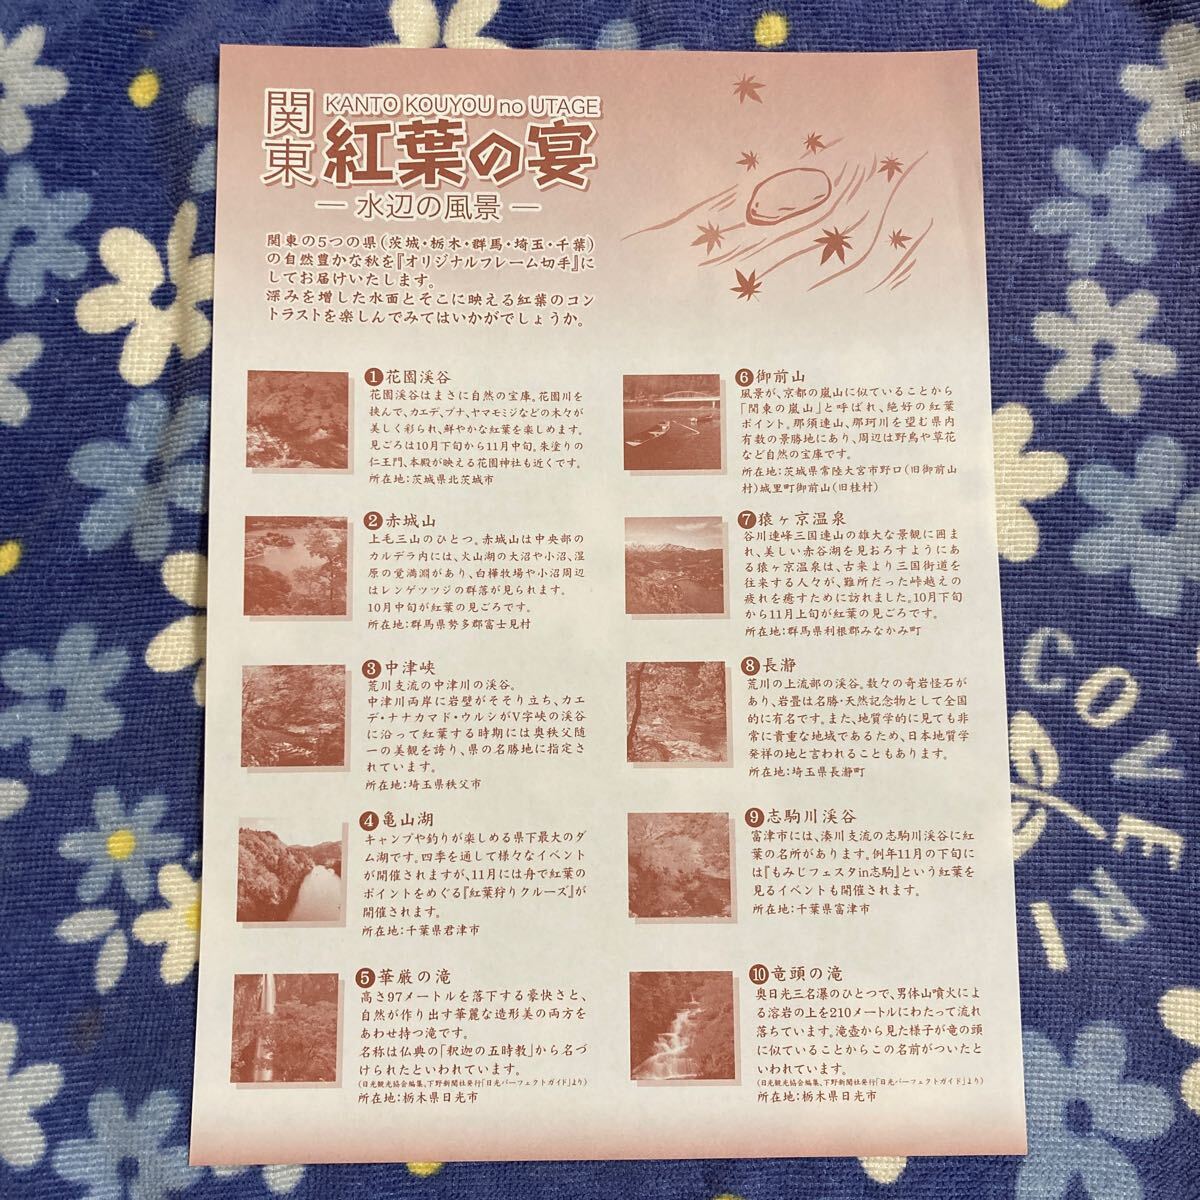 関東
KANTO KOUYOU no UTAGE
紅葉の宴
― 水辺の風景 ―
関東の5つの県(茨城・栃木・群馬・埼玉・千葉)
の自然豊かな秋を『オリジナルフレーム切手』に
してお届けいたします。
深みを増した水面とそこに映える紅葉のコン
トラストを楽しんでみてはいかがでしょうか。
❶花園渓谷
花園渓谷はまさに自然の宝庫。花園川を
挟んで、カエデ、ブナ、ヤマモミジなどの木々が
美しく彩られ、鮮やかな紅葉を楽しめます。
見ごろは10月下旬から11月中旬。朱塗りの
仁王門、本殿が映える花園神社も近くです。
所在地:茨城県北茨城市
❷赤城山
上毛三山のひとつ。赤城山は中央部の
カルデラ内には、火山湖の大沼や小沼、湿
原の覚満淵があり、白樺牧場や小沼周辺
はレンゲツツジの群落が見られます。
10月中旬が紅葉の見ごろです。
所在地:群馬県勢多郡富士見村
❸中津峡
荒川支流の中津川の渓谷。
中津川両岸に岩壁がそそり立ち、カエ
デ・ナナカマド・ウルシがV字峡の渓谷
に沿って紅葉する時期には奥秩父随
一の美観を誇り、県の名勝地に指定さ
れています。
所在地:埼玉県秩父市
❹亀山湖
キャンプや釣りが楽しめる県下最大のダ
ム湖です。四季を通して様々なイベント
が開催されますが、11月には舟で紅葉の
ポイントをめぐる『紅葉狩りクルーズ』が
開催されます。
所在地:千葉県君津市
❺華厳の滝
高さ97メートルを落下する豪快さと、
自然が作り出す華麗な造形美の両方を
あわせ持つ滝です。
名称は仏典の「釈迦の五時教」から名づ
けられたといわれています。
(日光観光協会編集、下野新聞社発行「日光パーフェクトガイド」より)
所在地:栃木県日光市
❻御前山
風景が、京都の嵐山に似ていることから
「関東の嵐山」と呼ばれ、絶好の紅葉
ポイント。那須連山、那珂川を望む県内
有数の景勝地にあり、周辺は野鳥や草花
など自然の宝庫です。
所在地:茨城県常陸大宮市野口(旧御前山
村)城里町御前山(旧桂村)
❼猿ヶ京温泉
谷川連峰三国連山の雄大な景観に囲ま
れ、美しい赤谷湖を見おろすようにあ
る猿ヶ京温泉は、古来より三国街道を
往来する人々が、難所だった峠越えの
疲れを癒すために訪れました。10月下旬
から11月上旬が紅葉の見ごろです。
所在地:群馬県利根郡みなかみ町
❽長瀞
荒川の上流部の渓谷。数々の奇岩怪石が
あり、岩畳は名勝・天然記念物として全国
的に有名です。また、地質学的に見ても非
常に貴重な地域であるため、日本地質学
発祥の地と言われることもあります。
所在地:埼玉県長瀞町
❾志駒川渓谷
富津市には、湊川支流の志駒川渓谷に紅
葉の名所があります。例年11月の下旬に
は『もみじフェスタin志駒』という紅葉を
見るイベントも開催されます。
所在地:千葉県富津市
❿竜頭の滝
奥日光三名瀑のひとつで、男体山噴火によ
る溶岩の上を210メートルにわたって流れ
落ちています。滝壺から見た様子が竜の頭
に似ていることからこの名前がついたと
いわれています。
(日光観光協会編集、下野新聞社発行「日光パーフェクトガイド」より)
所在地:栃木県日光市